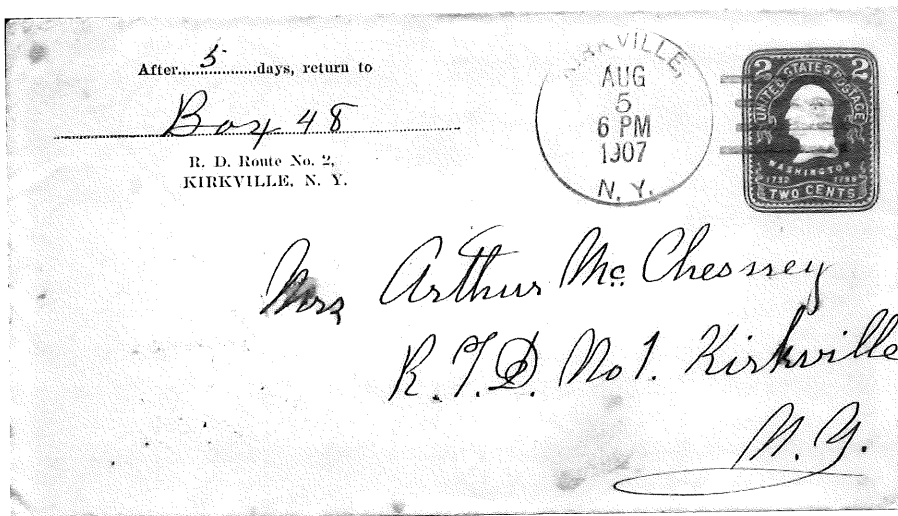 After 5 days, return to
Box 48
R. D. Route No. 2,
KIRKVILLE, N. Y.
KIRKVILLE,
AUG
5
6 PM
1907
N. Y.
2 2
UNITED STATES POSTAGE
WASHINGTON
1732 1799
TWO CENTS
Mrs Arthur Mc Chesney
R. F. D. No 1. Kirkville
N. Y.